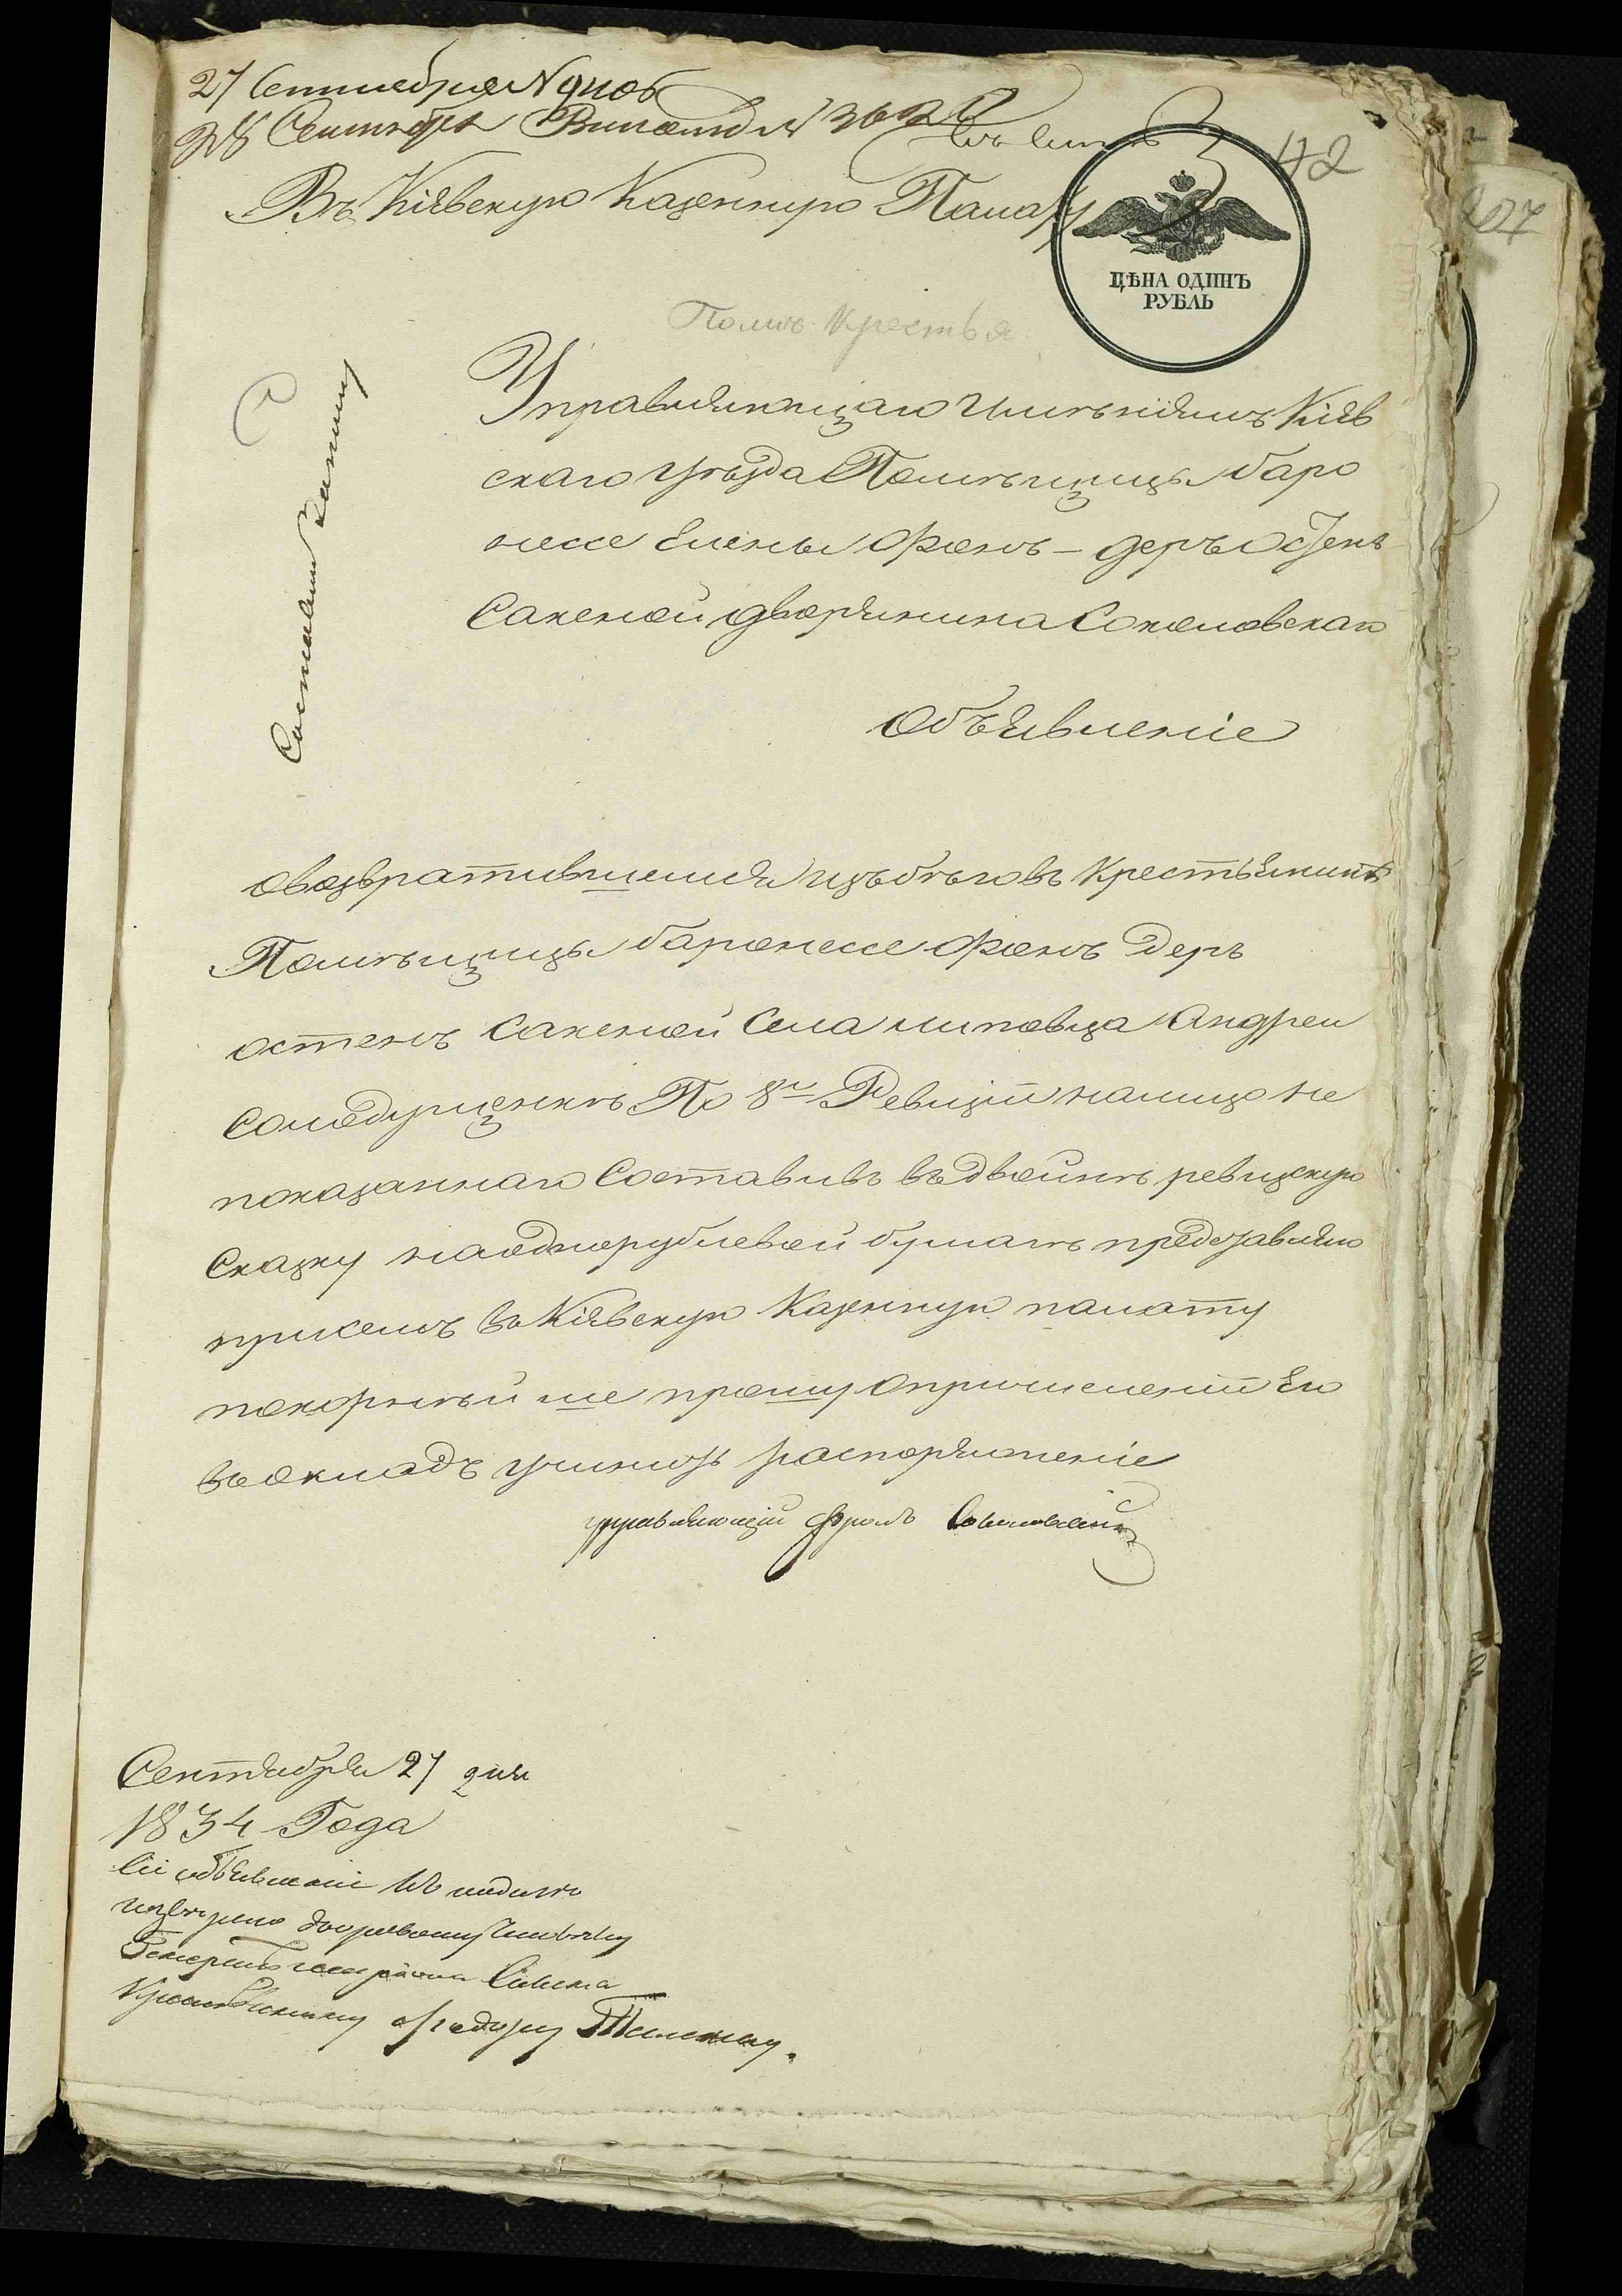 27 Сентября N 9106
28 Сентября
Въ Кіевскую Казенную Палату
42
107
ЦѢНА ОДИНЪ
РУБЛЬ
Помѣ. Крестья.
Управляющаго Имѣніямъ Кіев
скаго Уѣзда Помѣщицы баро
нессе Елены Фонъ-деръ Остенъ
Сакеной дворянина Соколовскаго
Объявленіе
о возвратившемся изъ бѣговъ Крестьянинѣ
Помѣщицы баронессе Фонъ Деръ
остенъ Сакеной Села липовца Андреи
Солодущенкѣ По 8й Ревизіи налицо не
показаннаго Составивъ въ двойнѣ ревизскую
Сказку на однорублевой бумагѣ представляю
присемъ въ Кіевскую Казенную палату
покорнѣйше прошу о причисленіи Его
въ окладъ учинить распоряженіе
управляющій Фролъ Соколовскій
Сентября 27 дня
1834 Года
Сіе объявленіе